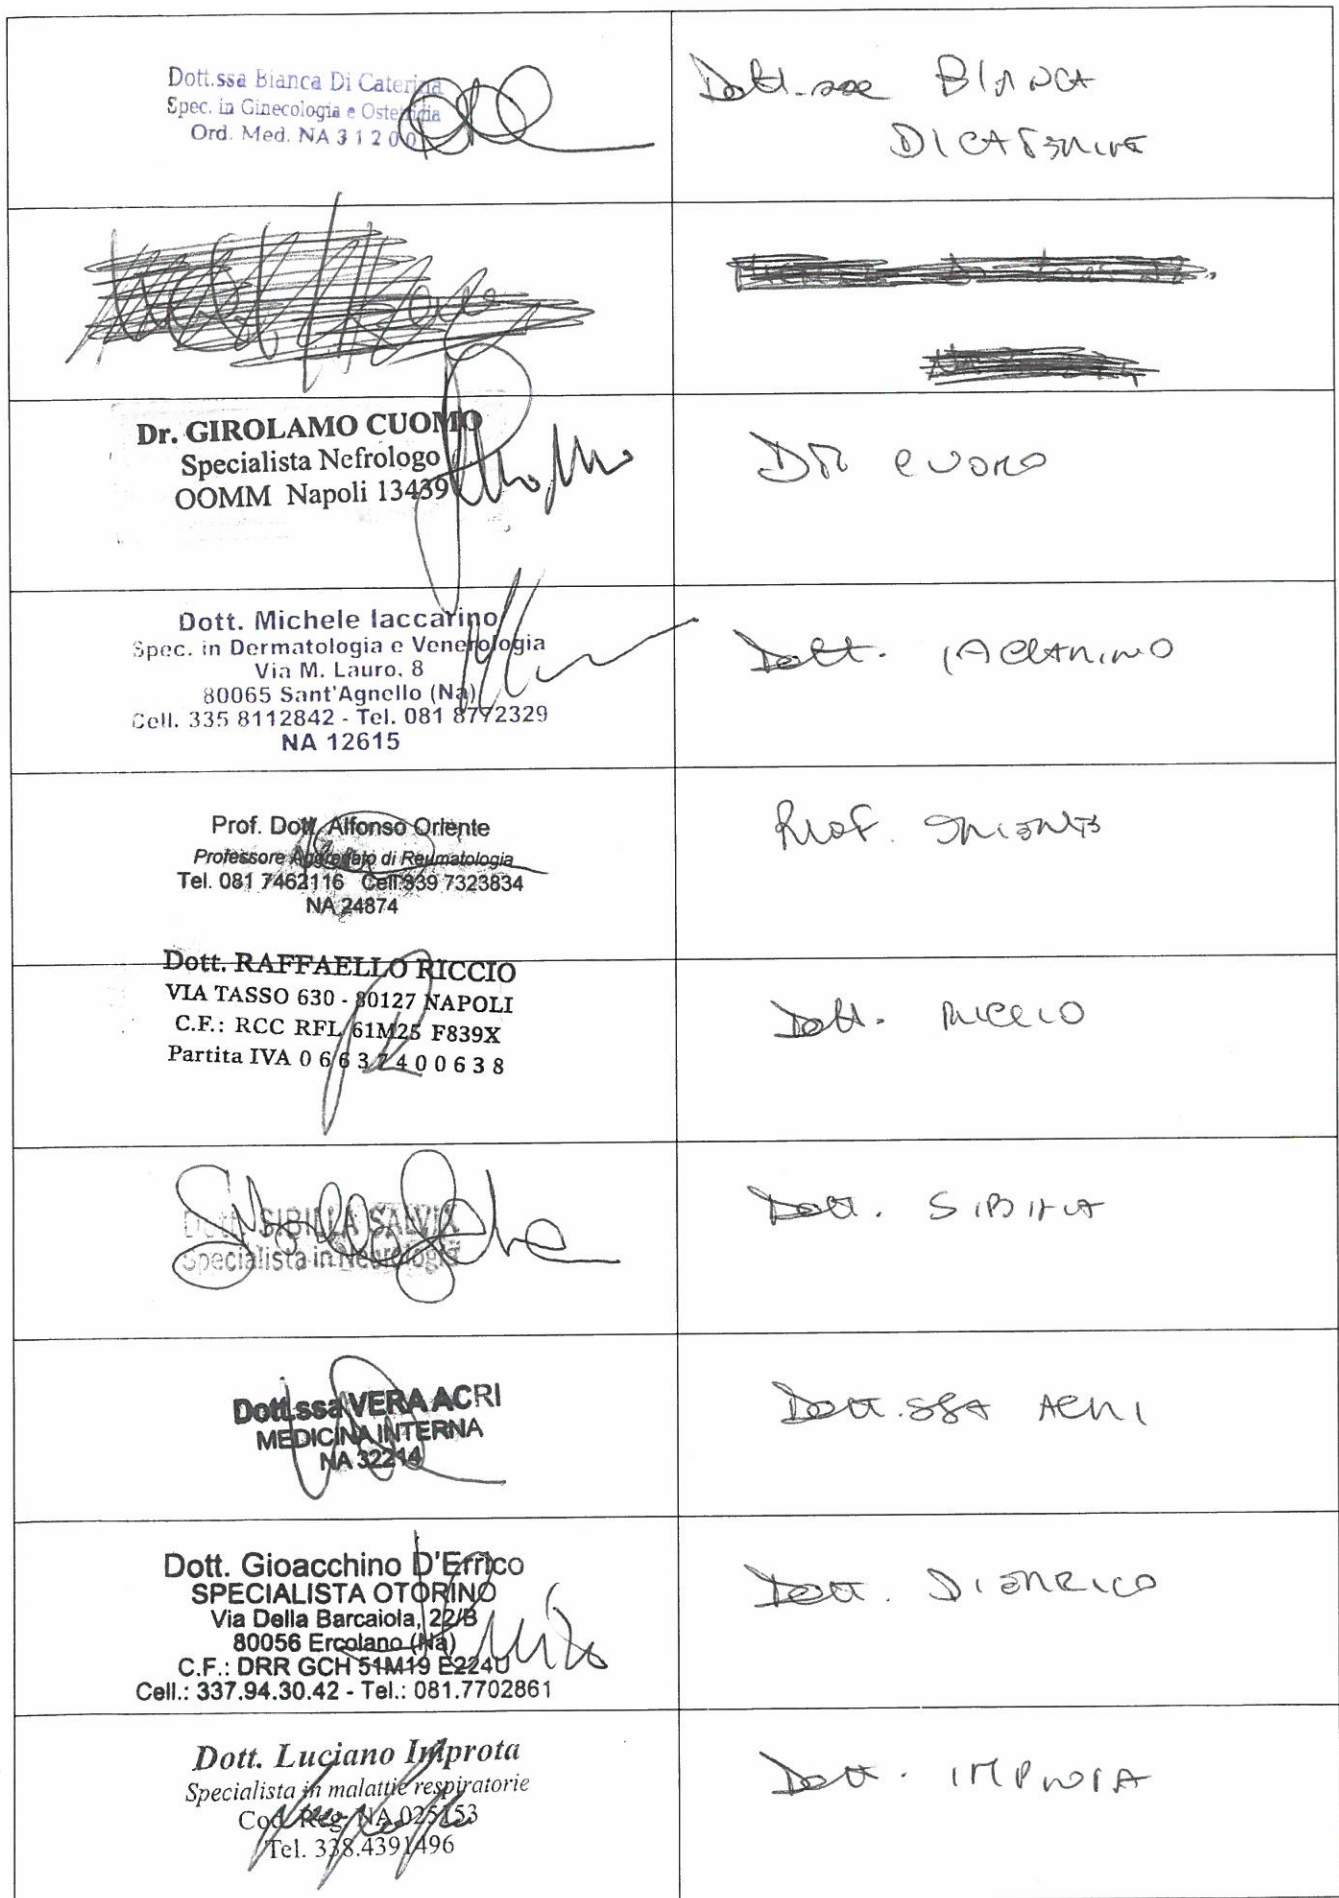 Dott.ssa Bianca Di Caterina
Spec. in Ginecologia e Ostetricia
Ord. Med. NA 3 1 2 0 0
Dott.ssa BIANCA
DI CATERINA
Dr. GIROLAMO CUOMO
Specialista Nefrologo
OOMM Napoli 13439
DR CUOMO
Dott. Michele Iaccarino
Spec. in Dermatologia e Venerologia
Via M. Lauro, 8
80065 Sant'Agnello (Na)
Cell. 335 8112842 - Tel. 081 8772329
NA 12615
Dott. IACCARINO
Prof. Dott. Alfonso Oriente
Professore Aggregato di Reumatologia
Tel. 081 7462116 Cell 339 7323834
NA 24874
PROF. ORIENTE
Dott. RAFFAELLO RICCIO
VIA TASSO 630 - 80127 NAPOLI
C.F.: RCC RFL 61M25 F839X
Partita IVA 0 6 6 3 7 4 0 0 6 3 8
Dott. RICCIO
SIBILLA SALVIA
Specialista in Neurologia
Dott. SIBILLA
Dott.ssa VERA ACRI
MEDICINA INTERNA
NA 32214
Dott.ssa ACRI
Dott. Gioacchino D'Errico
SPECIALISTA OTORINO
Via Della Barcaiola, 22/B
80056 Ercolano (Na)
C.F.: DRR GCH 51M19 E224U
Cell.: 337.94.30.42 - Tel.: 081.7702861
Dott. DIERRICO
Dott. Luciano Improta
Specialista in malattie respiratorie
Cod. Reg. NA 025153
Tel. 338.4391496
Dott. IMPROTA